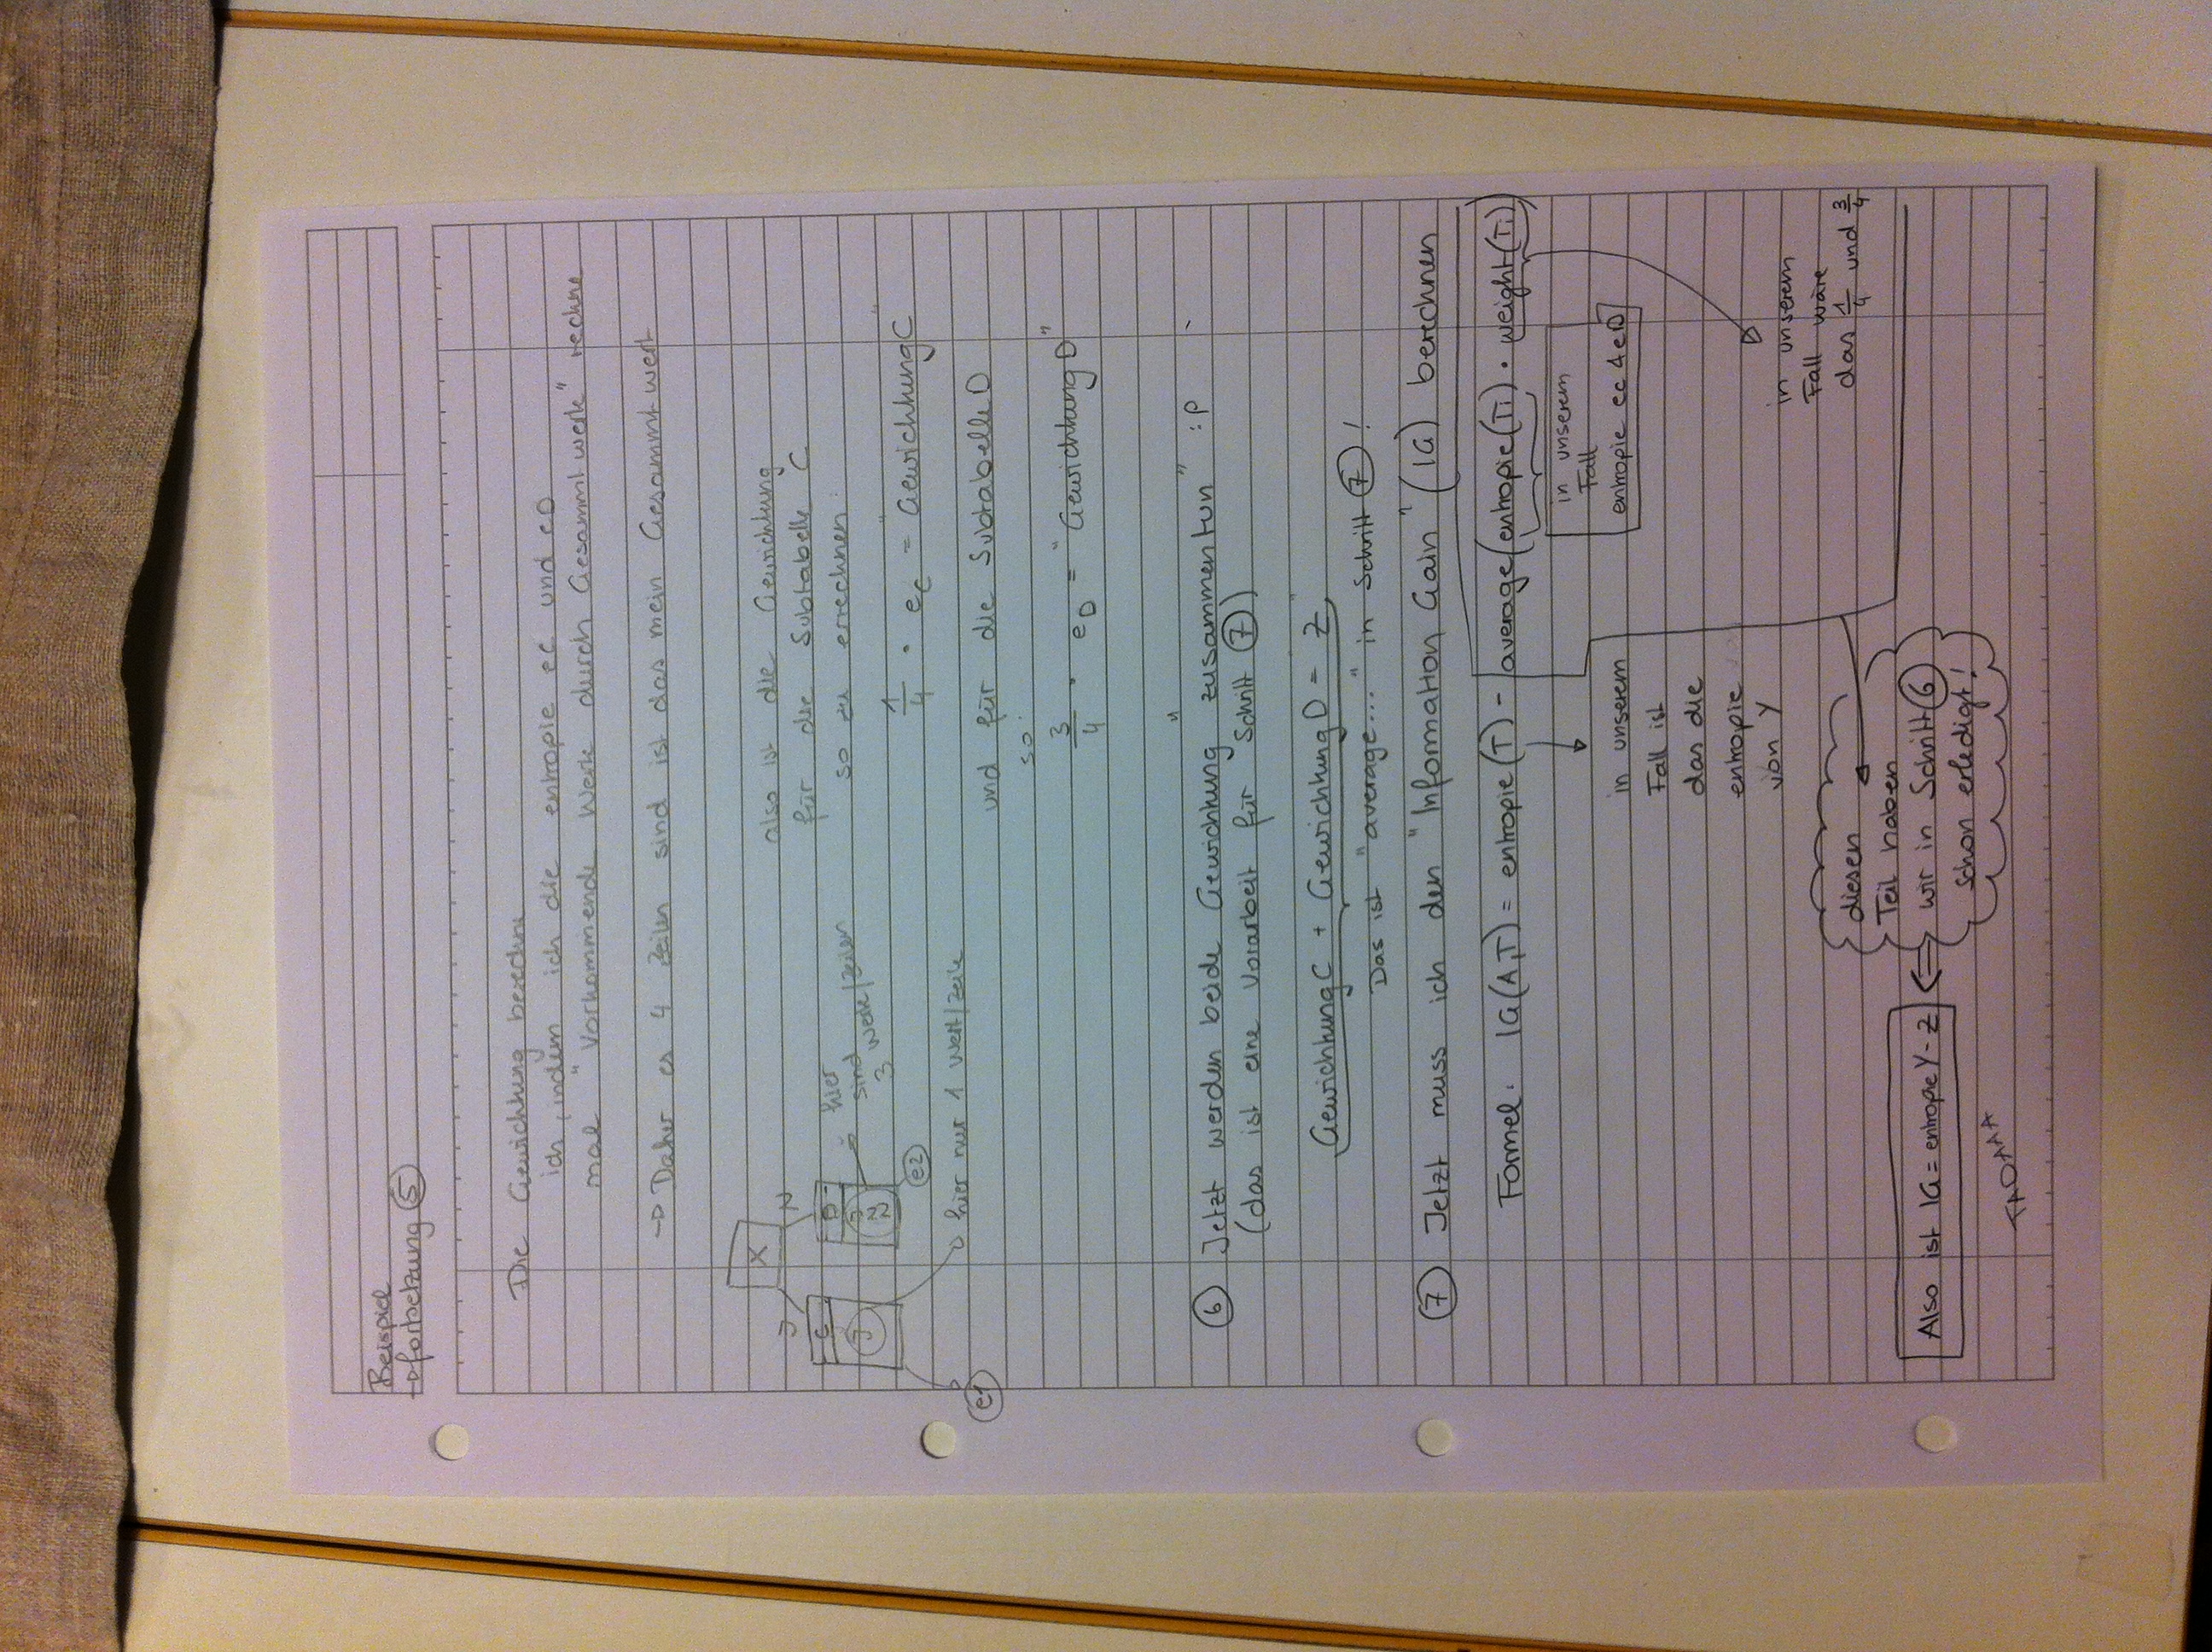 Beispiel
→ fortsetzung ⑤
Die Gewichtung berechne
ich, indem ich die entropie ec und eD
mal "Vorkommende Werte durch Gesammtwerte" rechne
→ Daher es 4 Zeilen sind ist das mein Gesammtwert
X
J N
C D
J
e1
e2
→ hier
sind
3 Werte/Zeilen
hier nur 1 Wert/Zeile
also ist die Gewichtung
für die Subtabelle C
so zu errechnen:
1/4 · eC = "Gewichtung C"
und für die Subtabelle D
so:
3/4 · eD = "Gewichtung D"
⑥ Jetzt werden beide Gewichtung "zusammentun" :P
(das ist eine Vorarbeit für Schritt ⑦)
Gewichtung C + Gewichtung D = "Z"
Das ist "average..." in Schritt ⑦ !
⑦ Jetzt muss ich den "Information Gain" (IG) berechnen
Formel: IG(A,T) = entropie(T) - average(entropie(Ti) · weight(Ti))
in unserem
Fall
entropie ec & eD
in unserem
Fall ist
das die
entropie
von Y
in unserem
Fall wäre
das 1/4 und 3/4
diesen
Teil haben
wir in Schritt ⑥
schon erledigt!
Also ist IG = entropie Y - Z
TADAAA